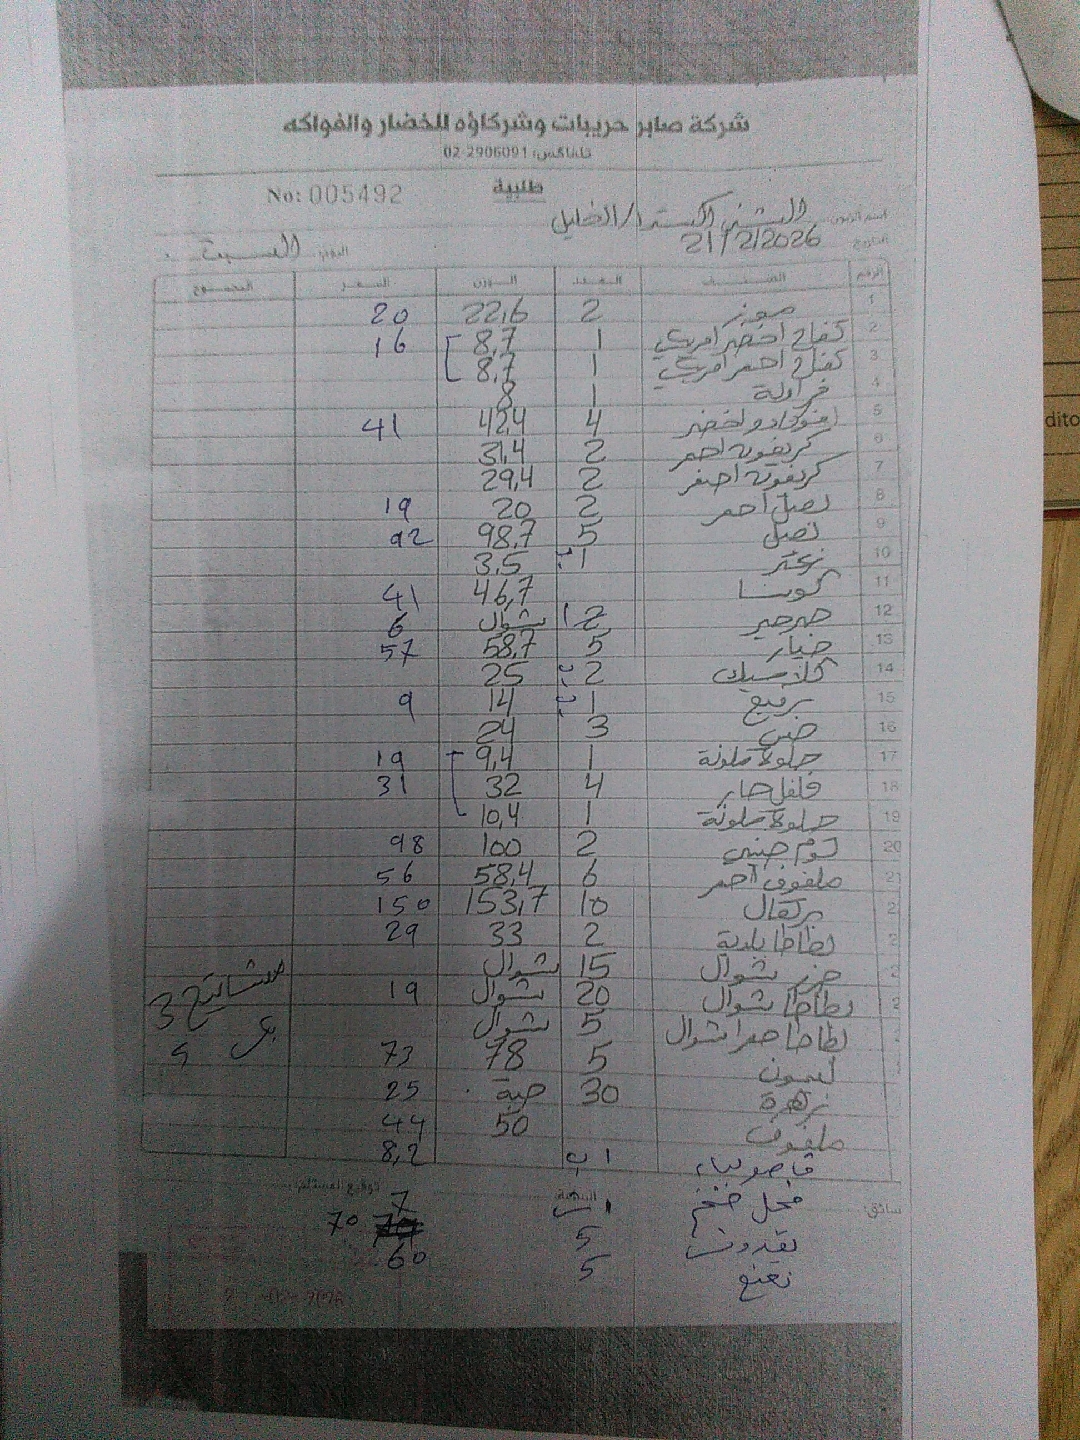 شركة صابر حريبات وشركاؤه للخضار والفواكه
تلفاكس: 02-2906091
No: 005492 طلبية
اسم الزبون: الشني اكسترا/الخليل
التاريخ 21/2/2026 اليوم: السبت
الرقم الصنف العدد الوزن السعر المجموع
1 موز 2 22,6 20
2 تفاح اخضر امريكي 1 8,7 16
3 تفاح احمر امريكي 1 8,7
4 فراولة 1 8
5 افوكادو اخضر 4 42,4 41
6 كريفوت احمر 2 31,4
7 كريفوت اصفر 2 29,4
8 بصل احمر 2 20 19
9 بصل 5 98,7 92
10 زعتر 1 ب 3,5
11 كوسا 46,7 41
12 جرجير 2 شوال 6
13 خيار 5 58,7 57
14 كلاسيك 2 ب 25
15 رفيع 1 ب 14 9
16 3 24
17 حلوة ملونة 1 9,4 19
18 فلفل حار 4 32 31
19 حلوة ملونة 1 10,4
20 توم صيني 2 100 98
2 ملفوف احمر 6 58,4 56
2 برتقال 10 153,7 150
2 بطاطا بلدية 2 33 29
2 جزر شوال 15 شوال
2 بطاطا شوال 20 شوال 19
بطاطا حمرا شوال 5 شوال
ليمون 5 78 73
زهرة 30 حبة 25
ملفوف 50 44
فاصولياء 1 ب 8,2
سائق: توقيع المستلم:
فجل ضخم 1 7
بقدونس 5 70
نعنع 5 60
مشاتيح 3